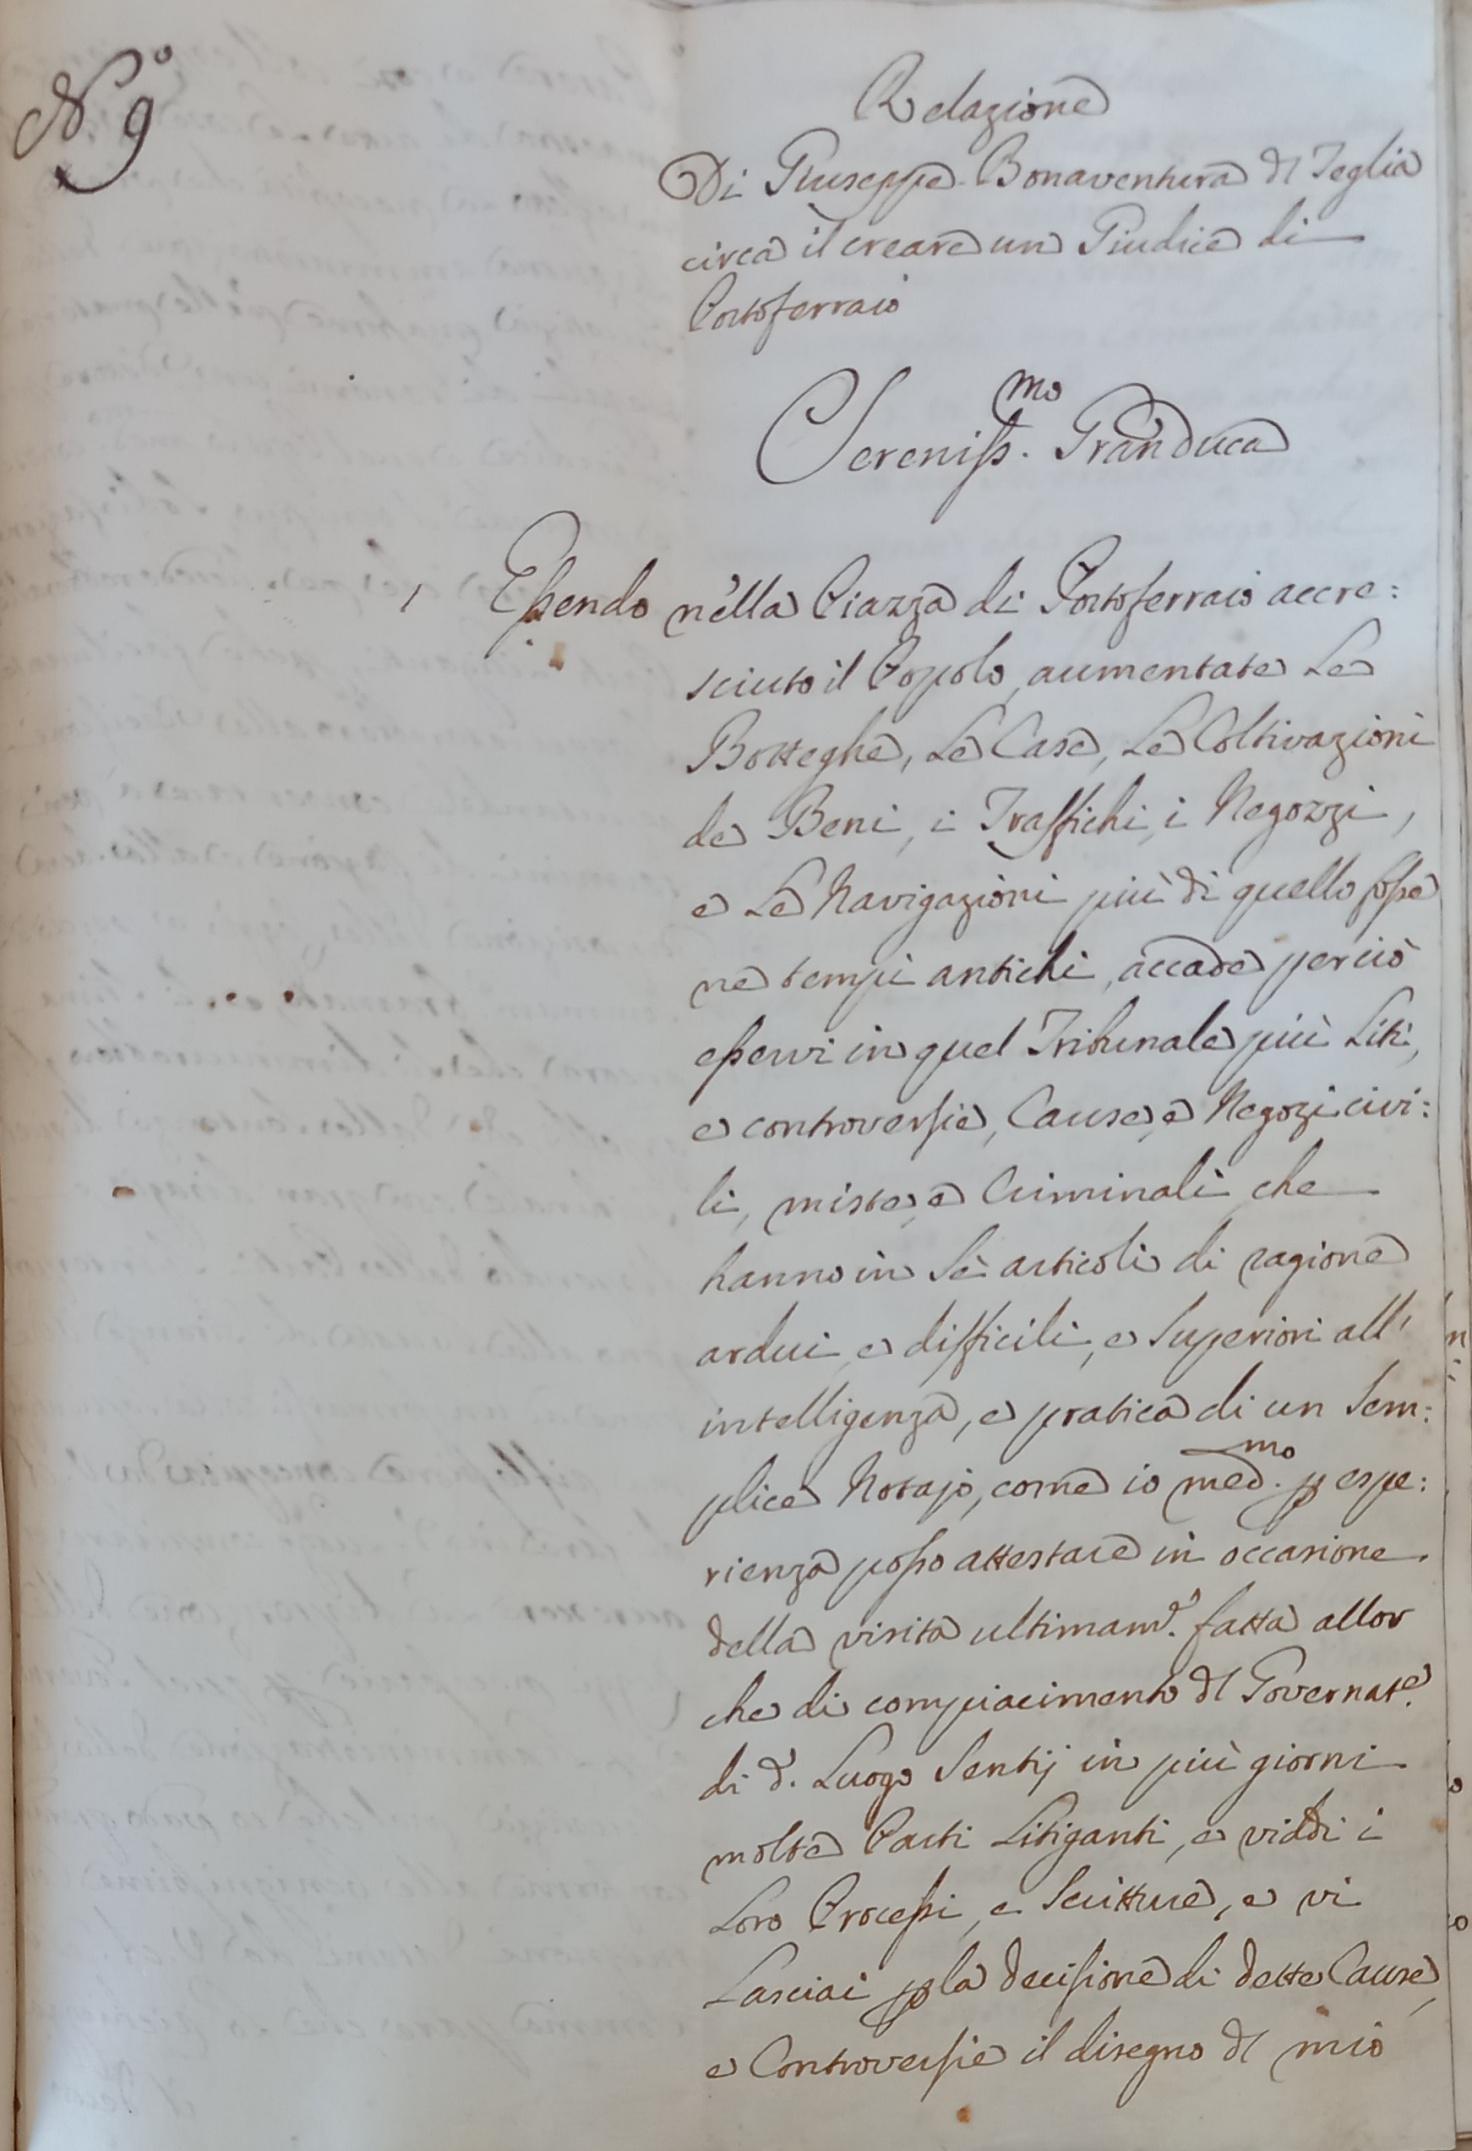 N.º 9
Relazione
Di Giuseppe Bonaventura Dl Teglia
circa il creare un Giudice di
Portoferraio
Sereniss.mo Gran Duca
1 Essendo nella Piazza di Portoferraio accre:
sciuto il Popolo, aumentate Le
Botteghe, Le Case, Le Coltivazioni
de Beni, i Traffichi, i Negozzi,
e Le Navigazioni più di quello fosse
ne tempi antichi, accade perciò
esservi in quel Tribunale più Liti,
e controversie, Cause, e Negozi civi:
li, miste, e Criminali che
hanno in Sè articoli di ragione
ardui e difficili, e Superiori all'
intelligenza, e pratica di un Sem:
plice Notajo, come io med.mo p espe:
rienza posso attestare in occasione
della visita ultimam.e fatta allor
che di compiacimento Dl Governat.e
di d.o Luogo Sentij in più giorni
molte Parti Litiganti, e viddi i
Loro Processi, e Scritture, e vi
Lasciai p la decisione di dette Cause,
e Controversie il disegno Dl mio